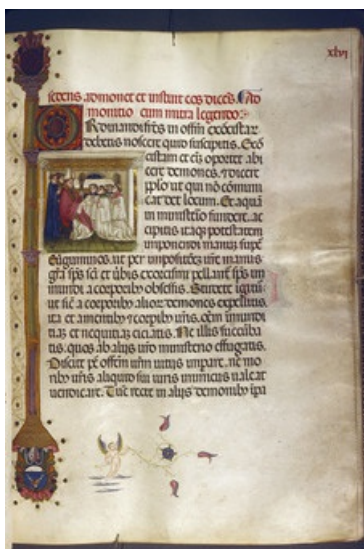 xlvi
sedens admonet et instruit eos dicẽs. Ad
monitio cum mitra legendo:
Ordinandi fr̃es in offm̃ exorcistar
debetis noscere quid suscipitis. Exor
cistam oportet abi
cere demones. ⁊ dicere
pplo ut qui nõ cõmuni
cat det locum. Et aquã
in ministerio fundere. ac
cipitis itaqꝫ potestatem
imponendi manus supẽ
ut per impositionẽ manus
gr̃a sp̃s sc̃i et exorcismi pellant̃ sp̃s im
mundi a corporibꝰ obsessis. Studete igitur
ut sic̃ a corporibꝰ alior̃ demones expellitis
ita et a mentibꝰ ⁊ corpibꝰ ur̃is. om̃ inmundi
tiaꝫ et nequitiaꝫ eiciatis. Ne illis succũba
tis. quos ab aliis ur̃o ministerio effugatis.
Discite p̃ offm̃ ur̃m uitiis impare. ne in
moribꝰ ur̃is aliquid sui iuris inimicus ualeat
uendicare. Tũc recte in aliis demonibꝰ ipa